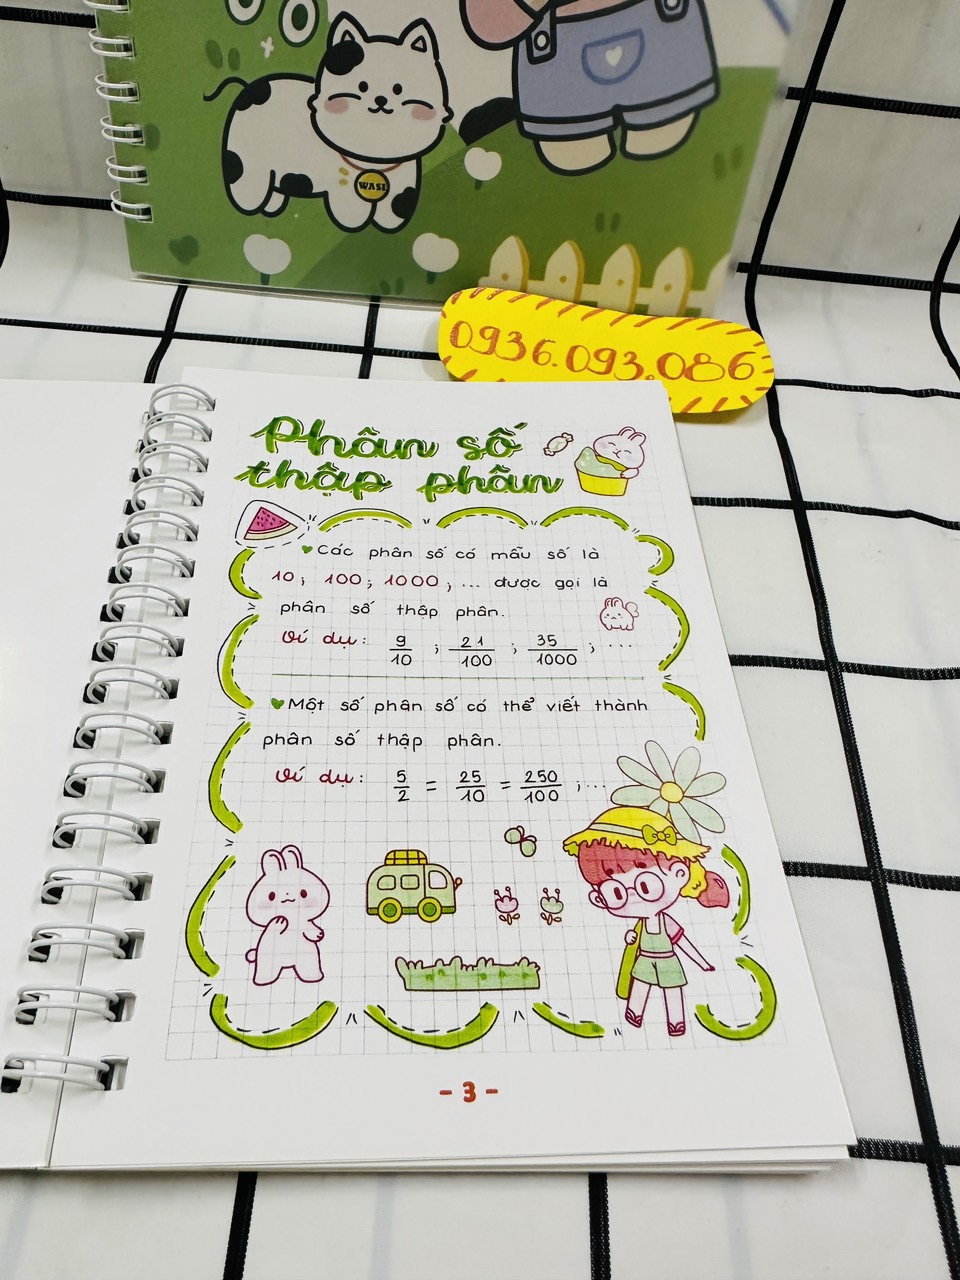 WASI
0936.093.086
Phân số
thập phân
Các phân số có mẫu số là
10; 100; 1000; ... được gọi là
phân số thập phân.
Ví dụ: 9/10 ; 21/100 ; 35/1000 ; ...
Một số phân số có thể viết thành
phân số thập phân.
Ví dụ: 5/2 = 25/10 = 250/100 ; ...
- 3 -